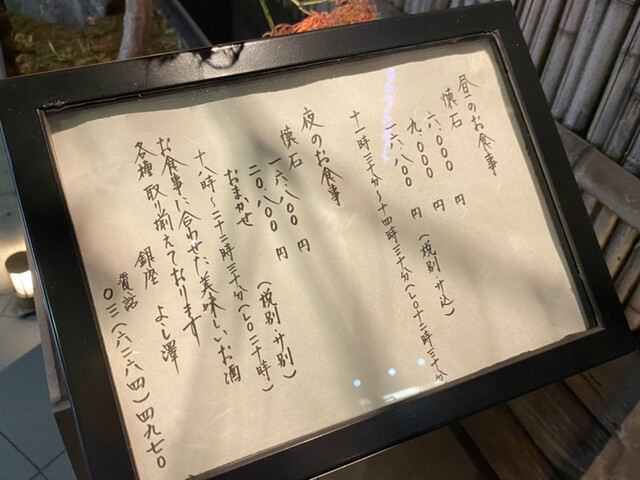 昼のお食事
懐石 六、〇〇〇 円
九、〇〇〇 円
一六、八〇〇 円 (税別・サ込)
十一時三十分〜十四時三十分(L.O十三時三十分)
夜のお食事
懐石 一六、八〇〇 円
二〇、八〇〇 円 (税別・サ別)
おまかせ
十八時〜二十二時三十分(L.O二十時)
お食事に合わせた美味しいお酒
各種取り揃えております
銀座 よし澤
電話 〇三(六二六四)四九七〇